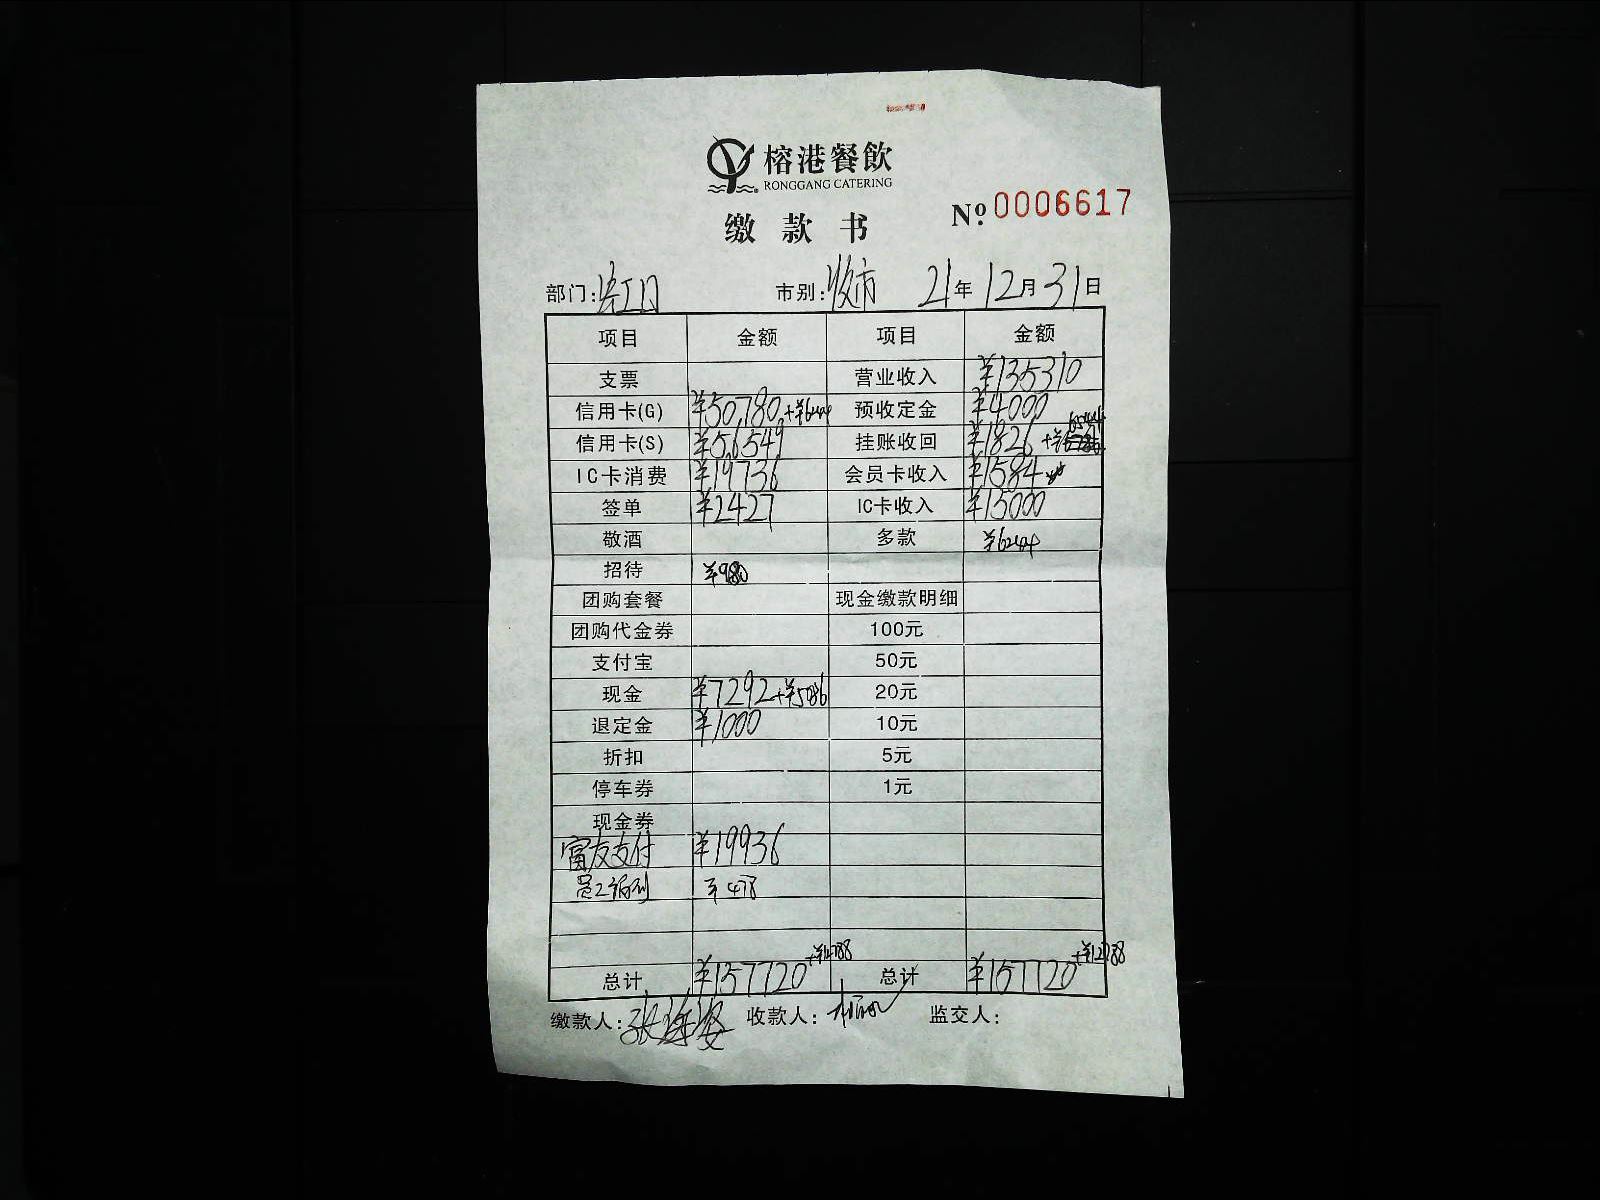 榕港餐飲
RONGGANG CATERING
缴款书 Nº 0006617
部门: 市别: 21年12月31日
项目 金额 项目 金额
支票 营业收入 ¥135310
信用卡(G) ¥50780 预收定金 ¥4000
信用卡(S) ¥56549 挂账收回 ¥1826
IC卡消费 ¥19736 会员卡收入 ¥1584
签单 ¥2427 IC卡收入 ¥15000
敬酒 多款 ¥6244
招待 ¥980
团购套餐 现金缴款明细
团购代金券 100元
支付宝 50元
现金 ¥7292 20元
退定金 ¥1000 10元
折扣 5元
停车券 1元
现金券
富友支付 ¥19936
员工福利 ¥478
总计 ¥157720 总计 ¥157720
缴款人: 收款人: 监交人: